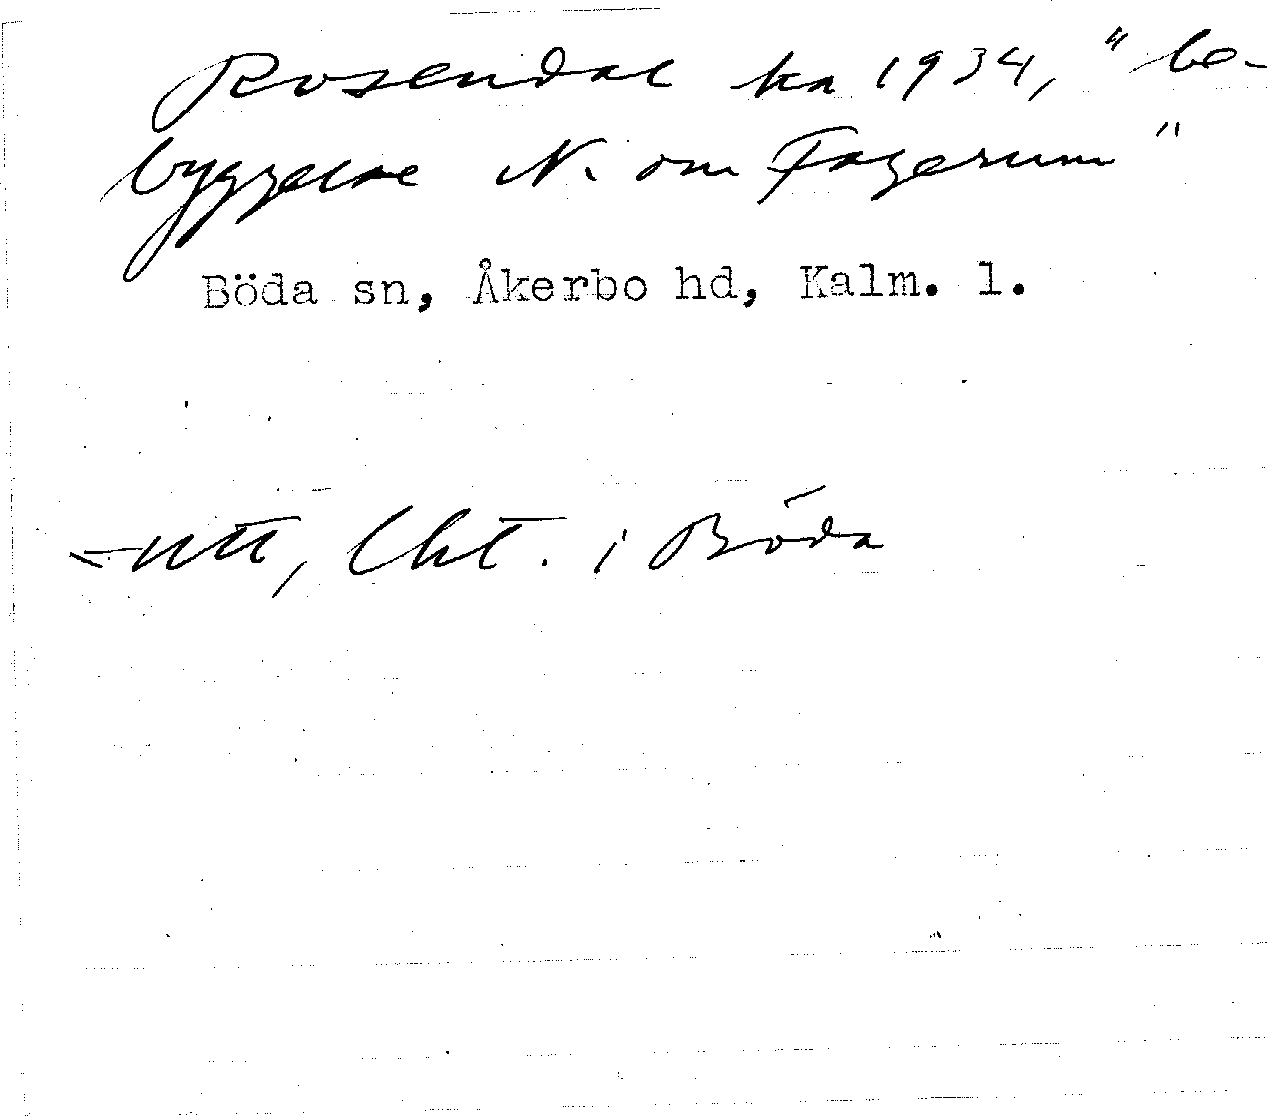 Rosendal ka 1934, "be-
byggelse N. om Fagerum"
Böda sn, Åkerbo hd, Kalm. l.
i Böda